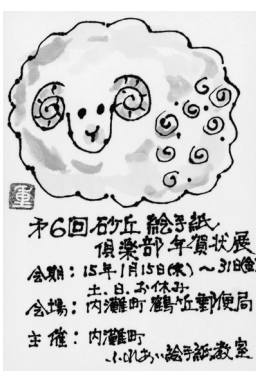 重
第6回砂丘絵手紙
倶楽部年賀状展
会期：15年1月15日(木)～31日(金)
土、日、お休み
会場：内灘町鶴ケ丘郵便局
主催：内灘町
ふれあい絵手紙教室